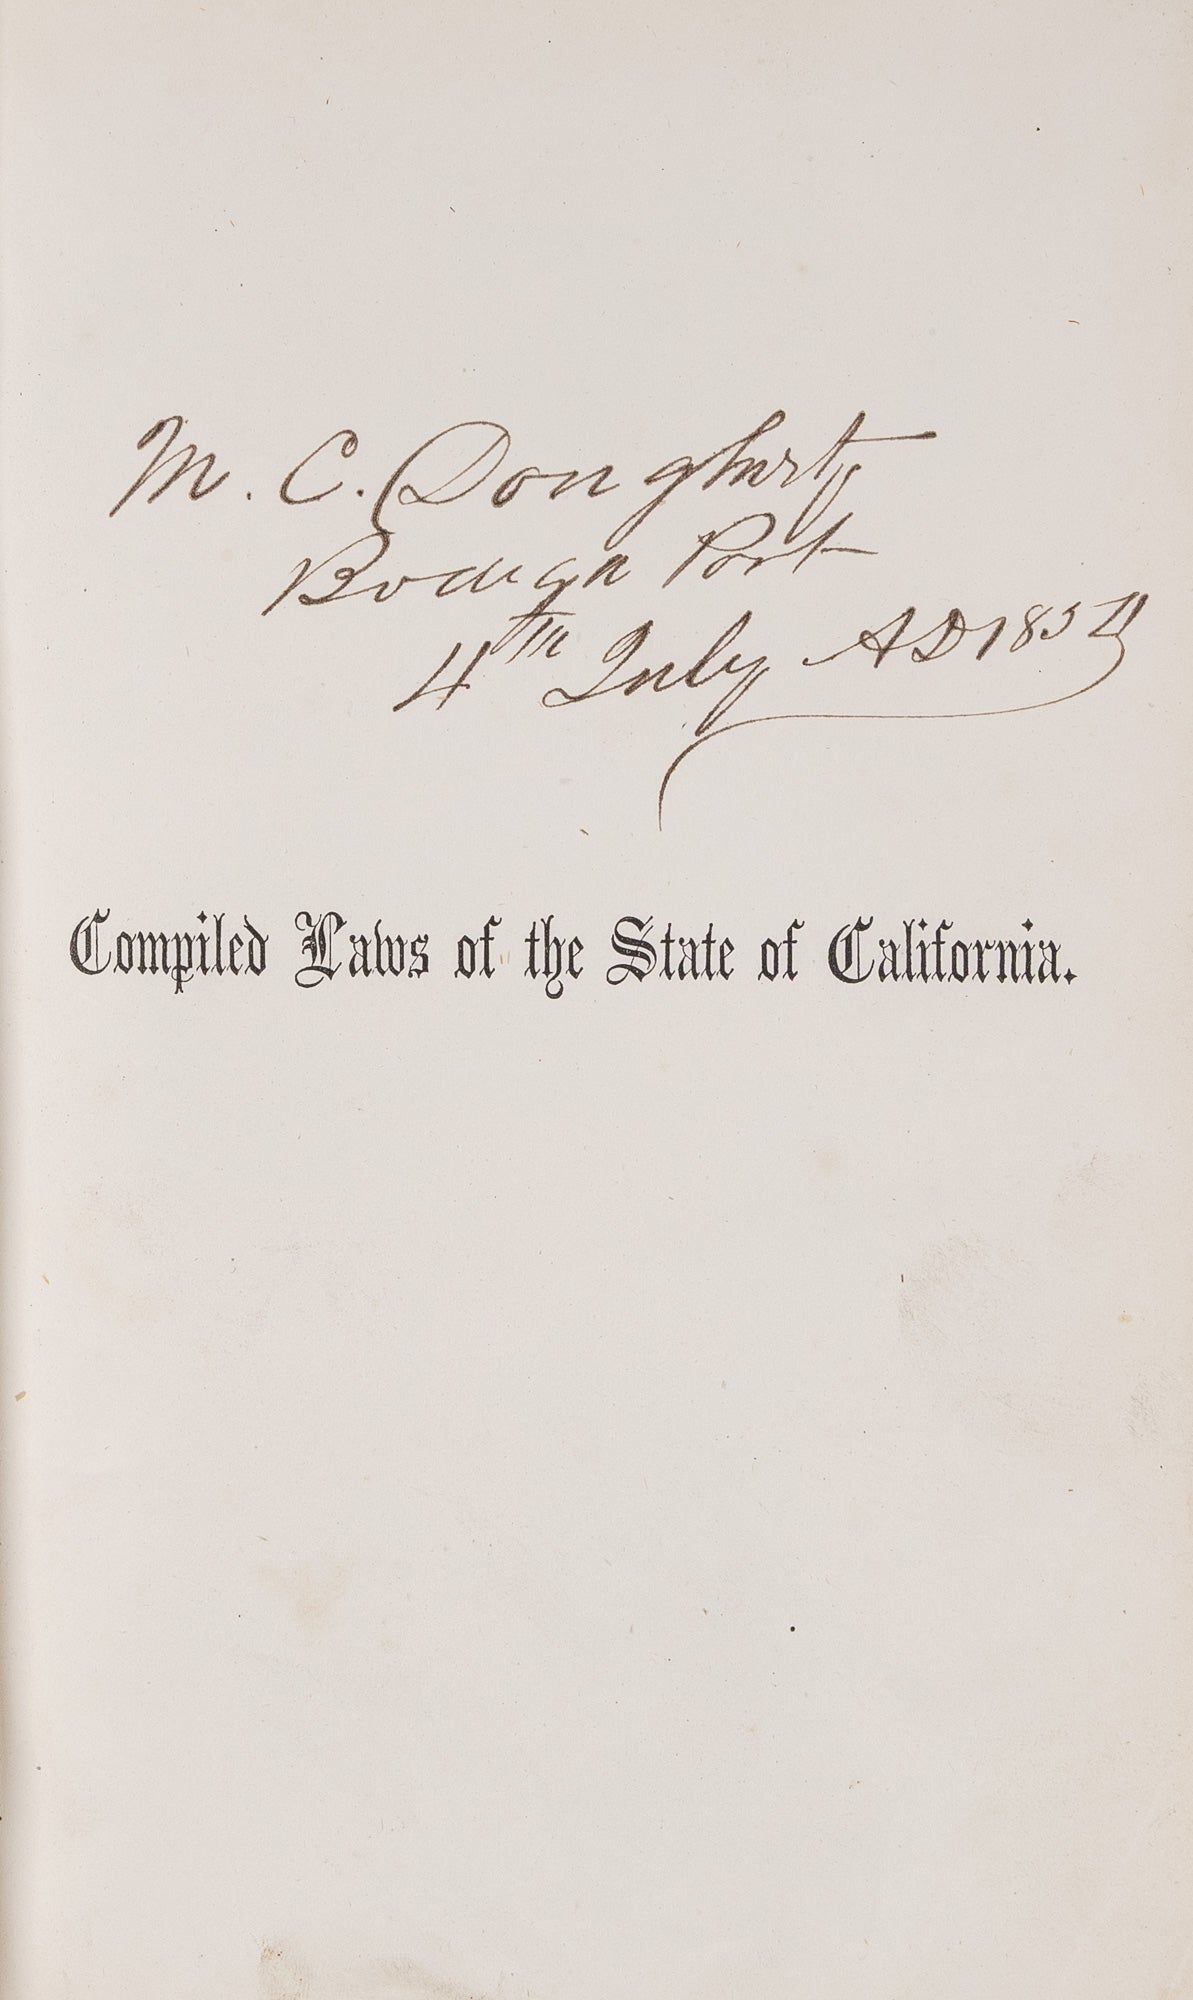 M. C. Dougherty
Bodega Port
4th July AD 1854
Compiled Laws of the State of California.